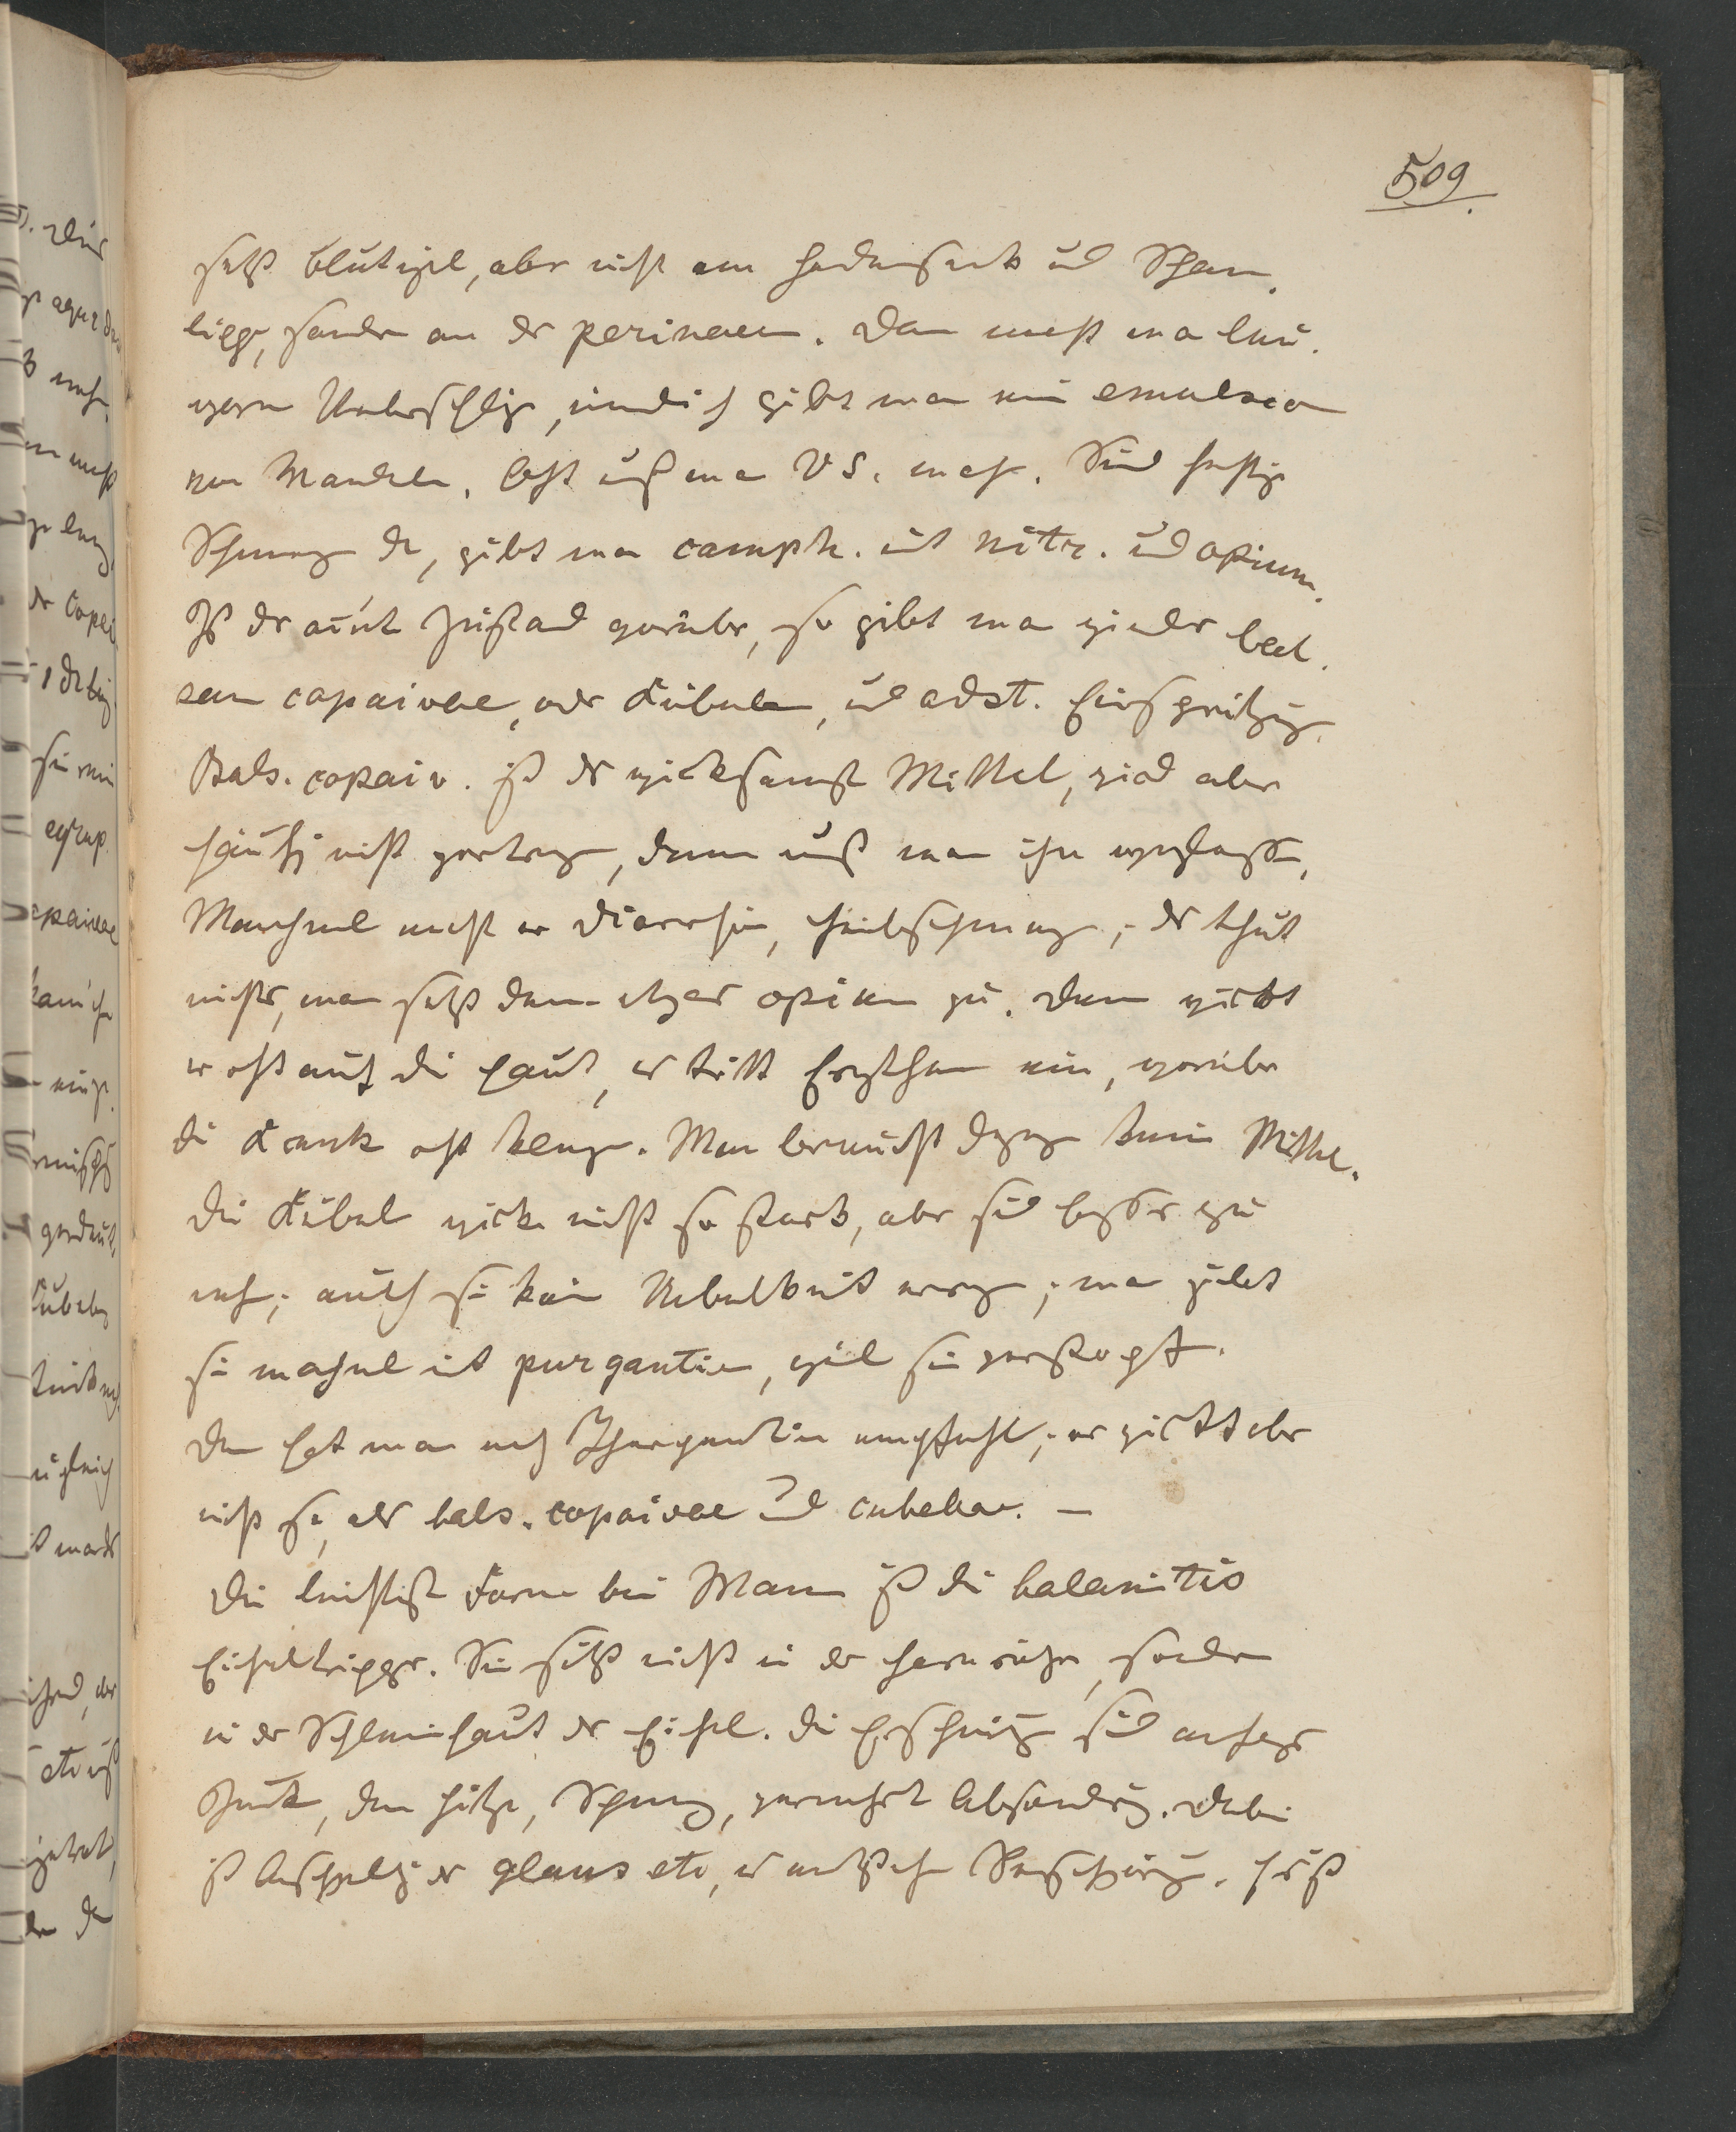 509.
setzt Blutigel, aber nicht am Hodensack und Scham¬
lippe, sondern an der perinaeum. Dann macht man lau¬
warme Ueberschläge, innerlich gibt man eine emulsion
von Mandeln. Oft muß man VS. mach. Sind heftige
Schmerzen da, gibt man camph. mit nitr. und opium.
Ist der acute Zustand vorüber, so gibt man wieder bal¬
sam copaivae, oder Kubeben, und adst. Einspritzung.
Bals. copaiv. ist das wirksamste Mittel, wird aber
häufig nicht vertragen, dann muß man ihn weglassen,
Manchmal macht er Diarrhöe, Leibschmerzen; das thut
nichts, man setzt dann etwas opium zu. Dann wirkt
er oft auf die Haut, es tritt Erythem ein, worüber
die Kranke oft klage. Man braucht dagegen keine Mittel.
Die Kubeb wirke nicht so stark, aber sind besser zu
neh; auch sie kein Uebelkeit erreg; man gibt
sie machmal mit purgantien, weil sie verstopft.
Dann hat man noch Therpentin empfohl; er wirkt aber
nicht so, als bals. copaivae und cubebae. —
Die leichteste Form bei Mann ist die balanitis
Eicheltripper. Sie sitzt nicht in der Harnröhre, sondern
in der Schleimhaut der Eichel. Die Erscheinung sind anfangs
Jucke, dann Hitze, Schmerz, vermehrt Absonderung. Dabei
ist Anschwellg der glans etc, es entstehe Verschwärung. Erst